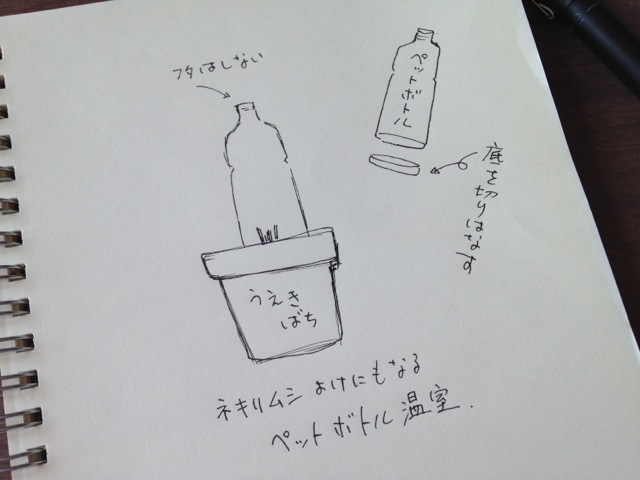 フタはしない
ペットボトル
底を切りはなす
うえき
ばち
ネキリムシ よけにもなる
ペットボトル 温室.